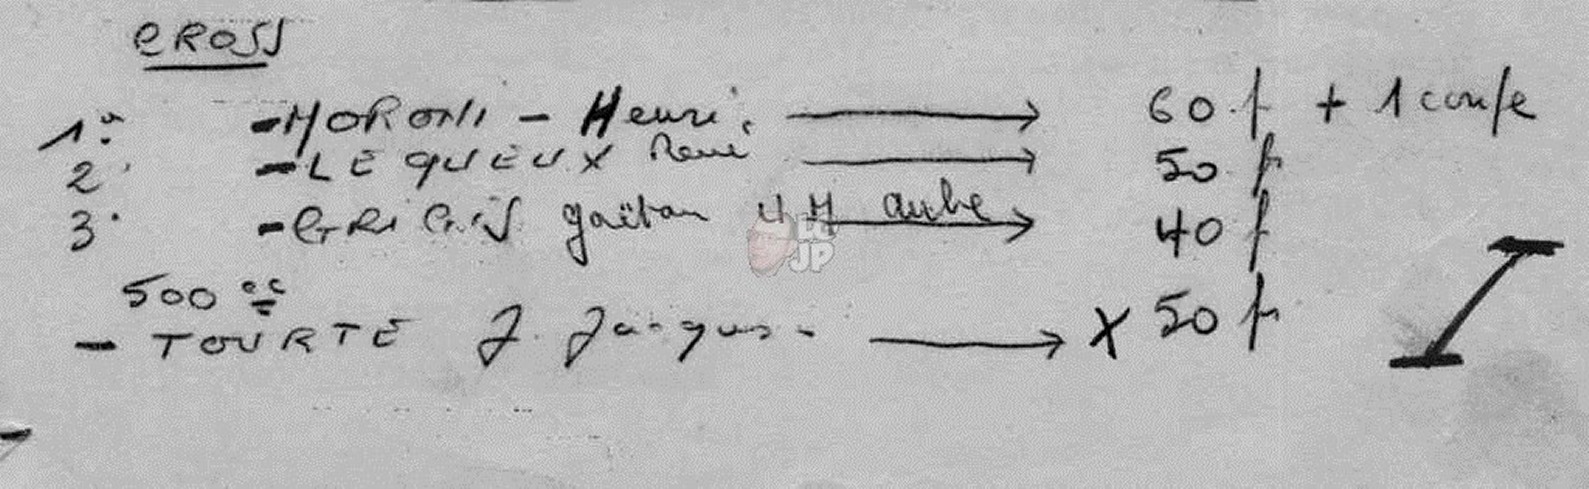 CROSS
1° - MORONI - Henri. → 60 f + 1 coupe
2° - LEQUEUX René → 50 fr
3° - GRIGIS gaëtan UM aube → 40 f
500 cc
- TOURTE J. Jacques - → X 50 fr
LE JP